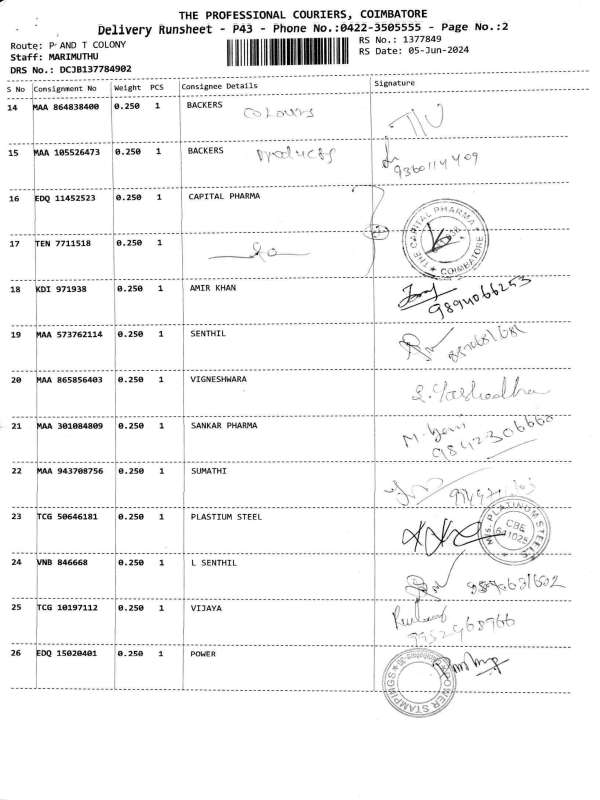 THE PROFESSIONAL COURIERS, COIMBATORE
Delivery Runsheet - P43 - Phone No.:0422-3505555 - Page No.:2
Route: P AND T COLONY RS No.: 1377849
Staff: MARIMUTHU RS Date: 05-Jun-2024
DRS No.: DCJB137784902
S No Consignment No Weight PCS Consignee Details Signature
14 MAA 864838400 0.250 1 BACKERS colours
15 MAA 105526473 0.250 1 BACKERS products
9360114409
16 EDQ 11452523 0.250 1 CAPITAL PHARMA
THE CAPITAL PHARMA COIMBATORE
17 TEN 7711518 0.250 1
18 KDI 971938 0.250 1 AMIR KHAN
9894066253
19 MAA 573762114 0.250 1 SENTHIL
20 MAA 865856403 0.250 1 VIGNESHWARA
21 MAA 301084809 0.250 1 SANKAR PHARMA
9842306668
22 MAA 943708756 0.250 1 SUMATHI
23 TCG 50646181 0.250 1 PLASTIUM STEEL
M/S. PLATINUM STEELS CBE 641025
24 VNB 846668 0.250 1 L SENTHIL
25 TCG 10197112 0.250 1 VIJAYA
9952968966
26 EDQ 15020401 0.250 1 POWER
POWER STAMPINGS